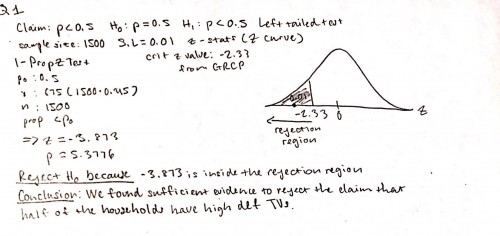 Q1
Claim: p<0.5 H₀: p=0.5 H₁: p<0.5 Left tailed test
sample size: 1500 S.L=0.01 z-stats (Z curve)
1-PropZTest crit z value: -2.33
from GRCP
p₀: 0.5
x: 675 (1500·0.45)
n: 1500
prop <p₀
⇒ z = -3.873
p = 5.3776
0.01
-2.33 0 z
rejection
region
Reject H₀ because -3.873 is inside the rejection region
Conclusion: We found sufficient evidence to reject the claim that
half of the households have high def TVs.